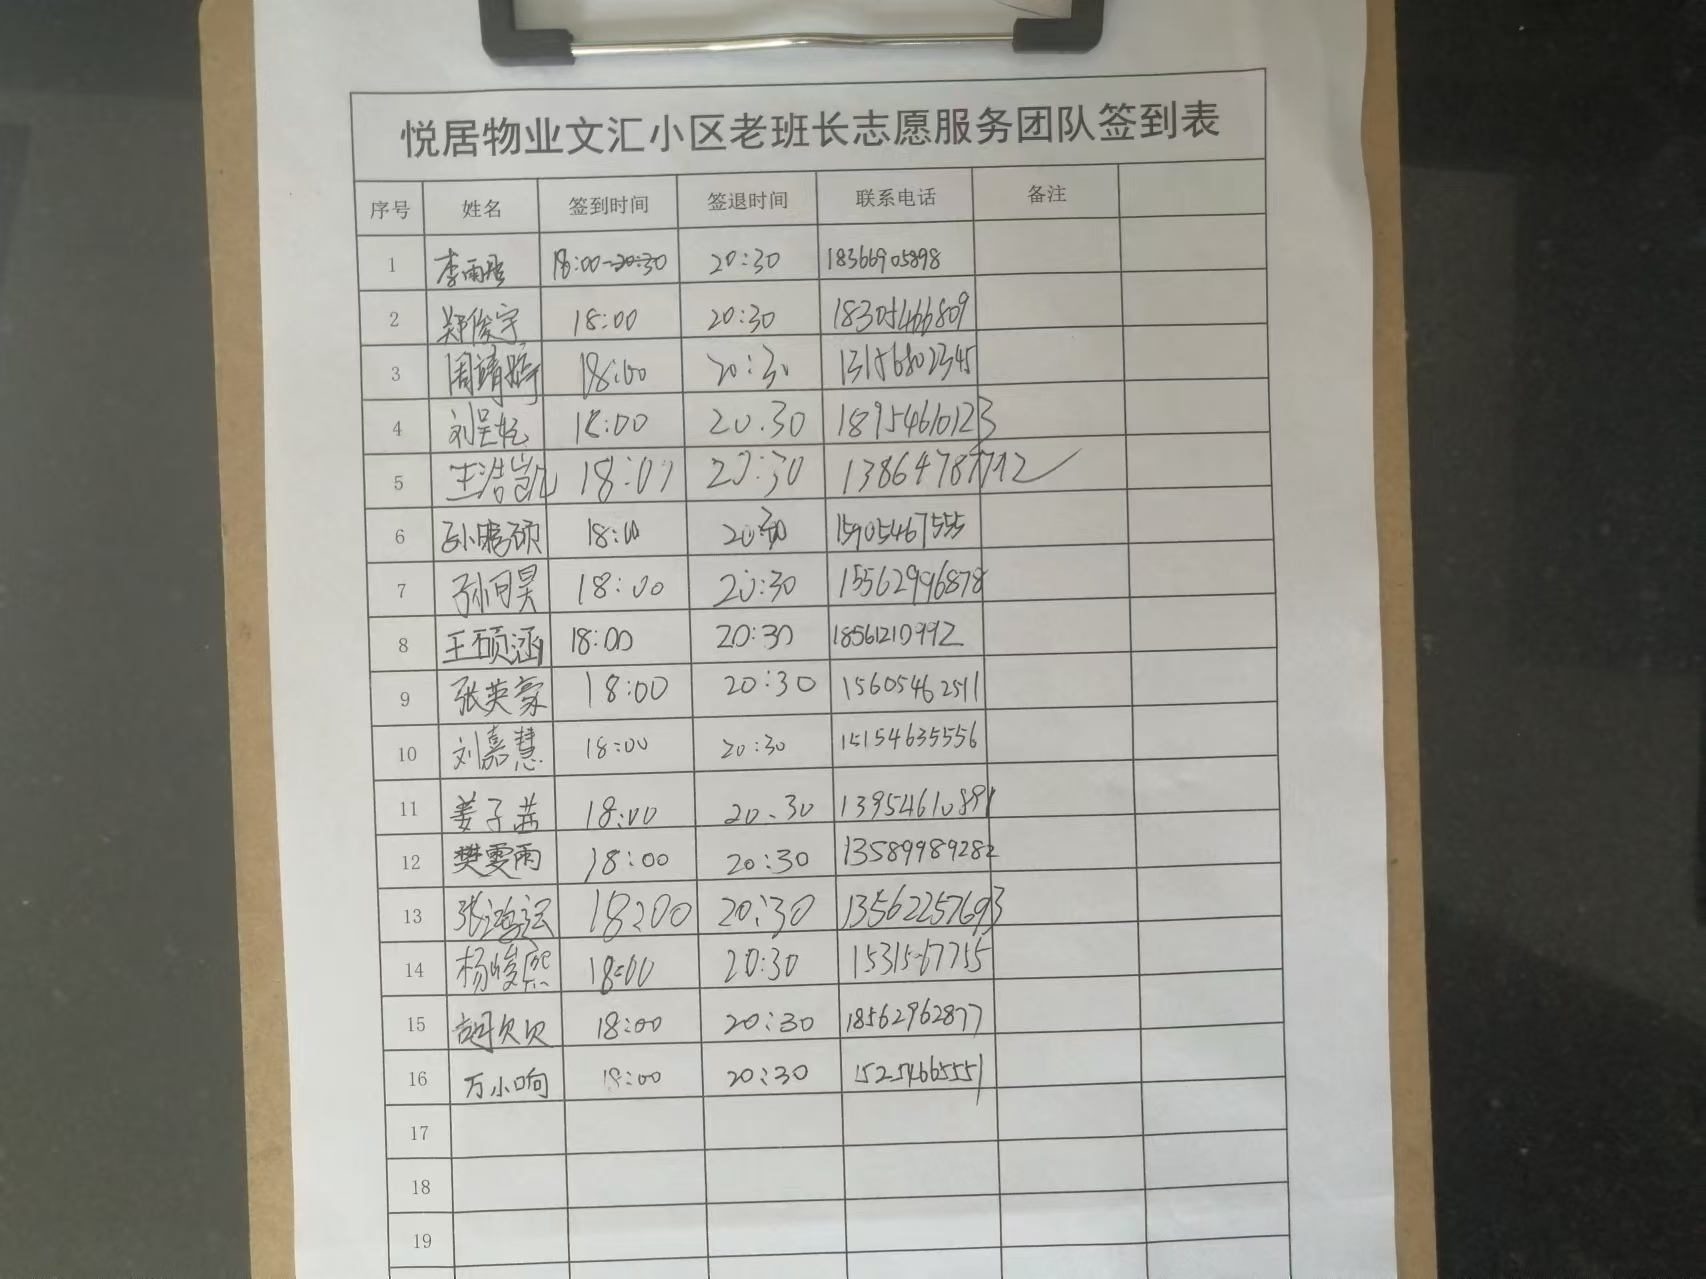 悦居物业文汇小区老班长志愿服务团队签到表
序号 姓名 签到时间 签退时间 联系电话 备注
1 18:00 20:30 18366905898
2 郑俊宇 18:00 20:30 18305466809
3 18:00 20:30 13156802345
4 18:00 20.30 18954610123
5 王浩凯 18:00 20:30
6 孙鹏硕 18:00 20:30 15905467555
7 18:00 20:30 15562996878
8 王硕涵 18:00 20:30 18561210992
9 张英豪 18:00 20:30 15605462511
10 刘嘉慧 18:00 20:30 15154635556
11 姜子茜 18:00 20.30 13954610891
12 樊雯雨 18:00 20:30 13589989282
13 张鸿运 18:00 20:30 13562257693
14 杨峻熙 18:00 20:30 15315167755
15 18:00 20:30 18562962877
16 万小响 18:00 20:30 15254665551
17
18
19